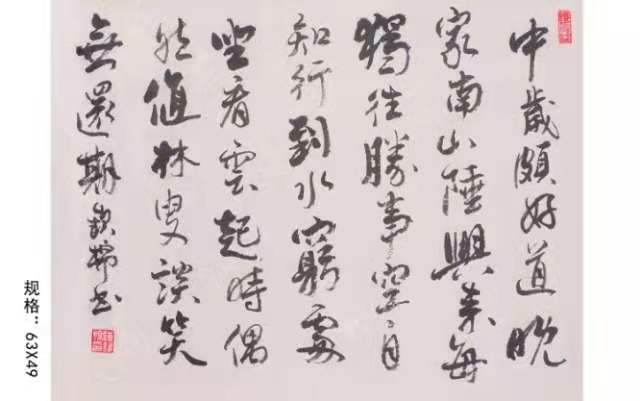 中歲頗好道晚
家南山陲興来每
獨往勝事空自
知行到水窮處
坐看雲起時偶
然值林叟談笑
無還期 书
规格：63X49